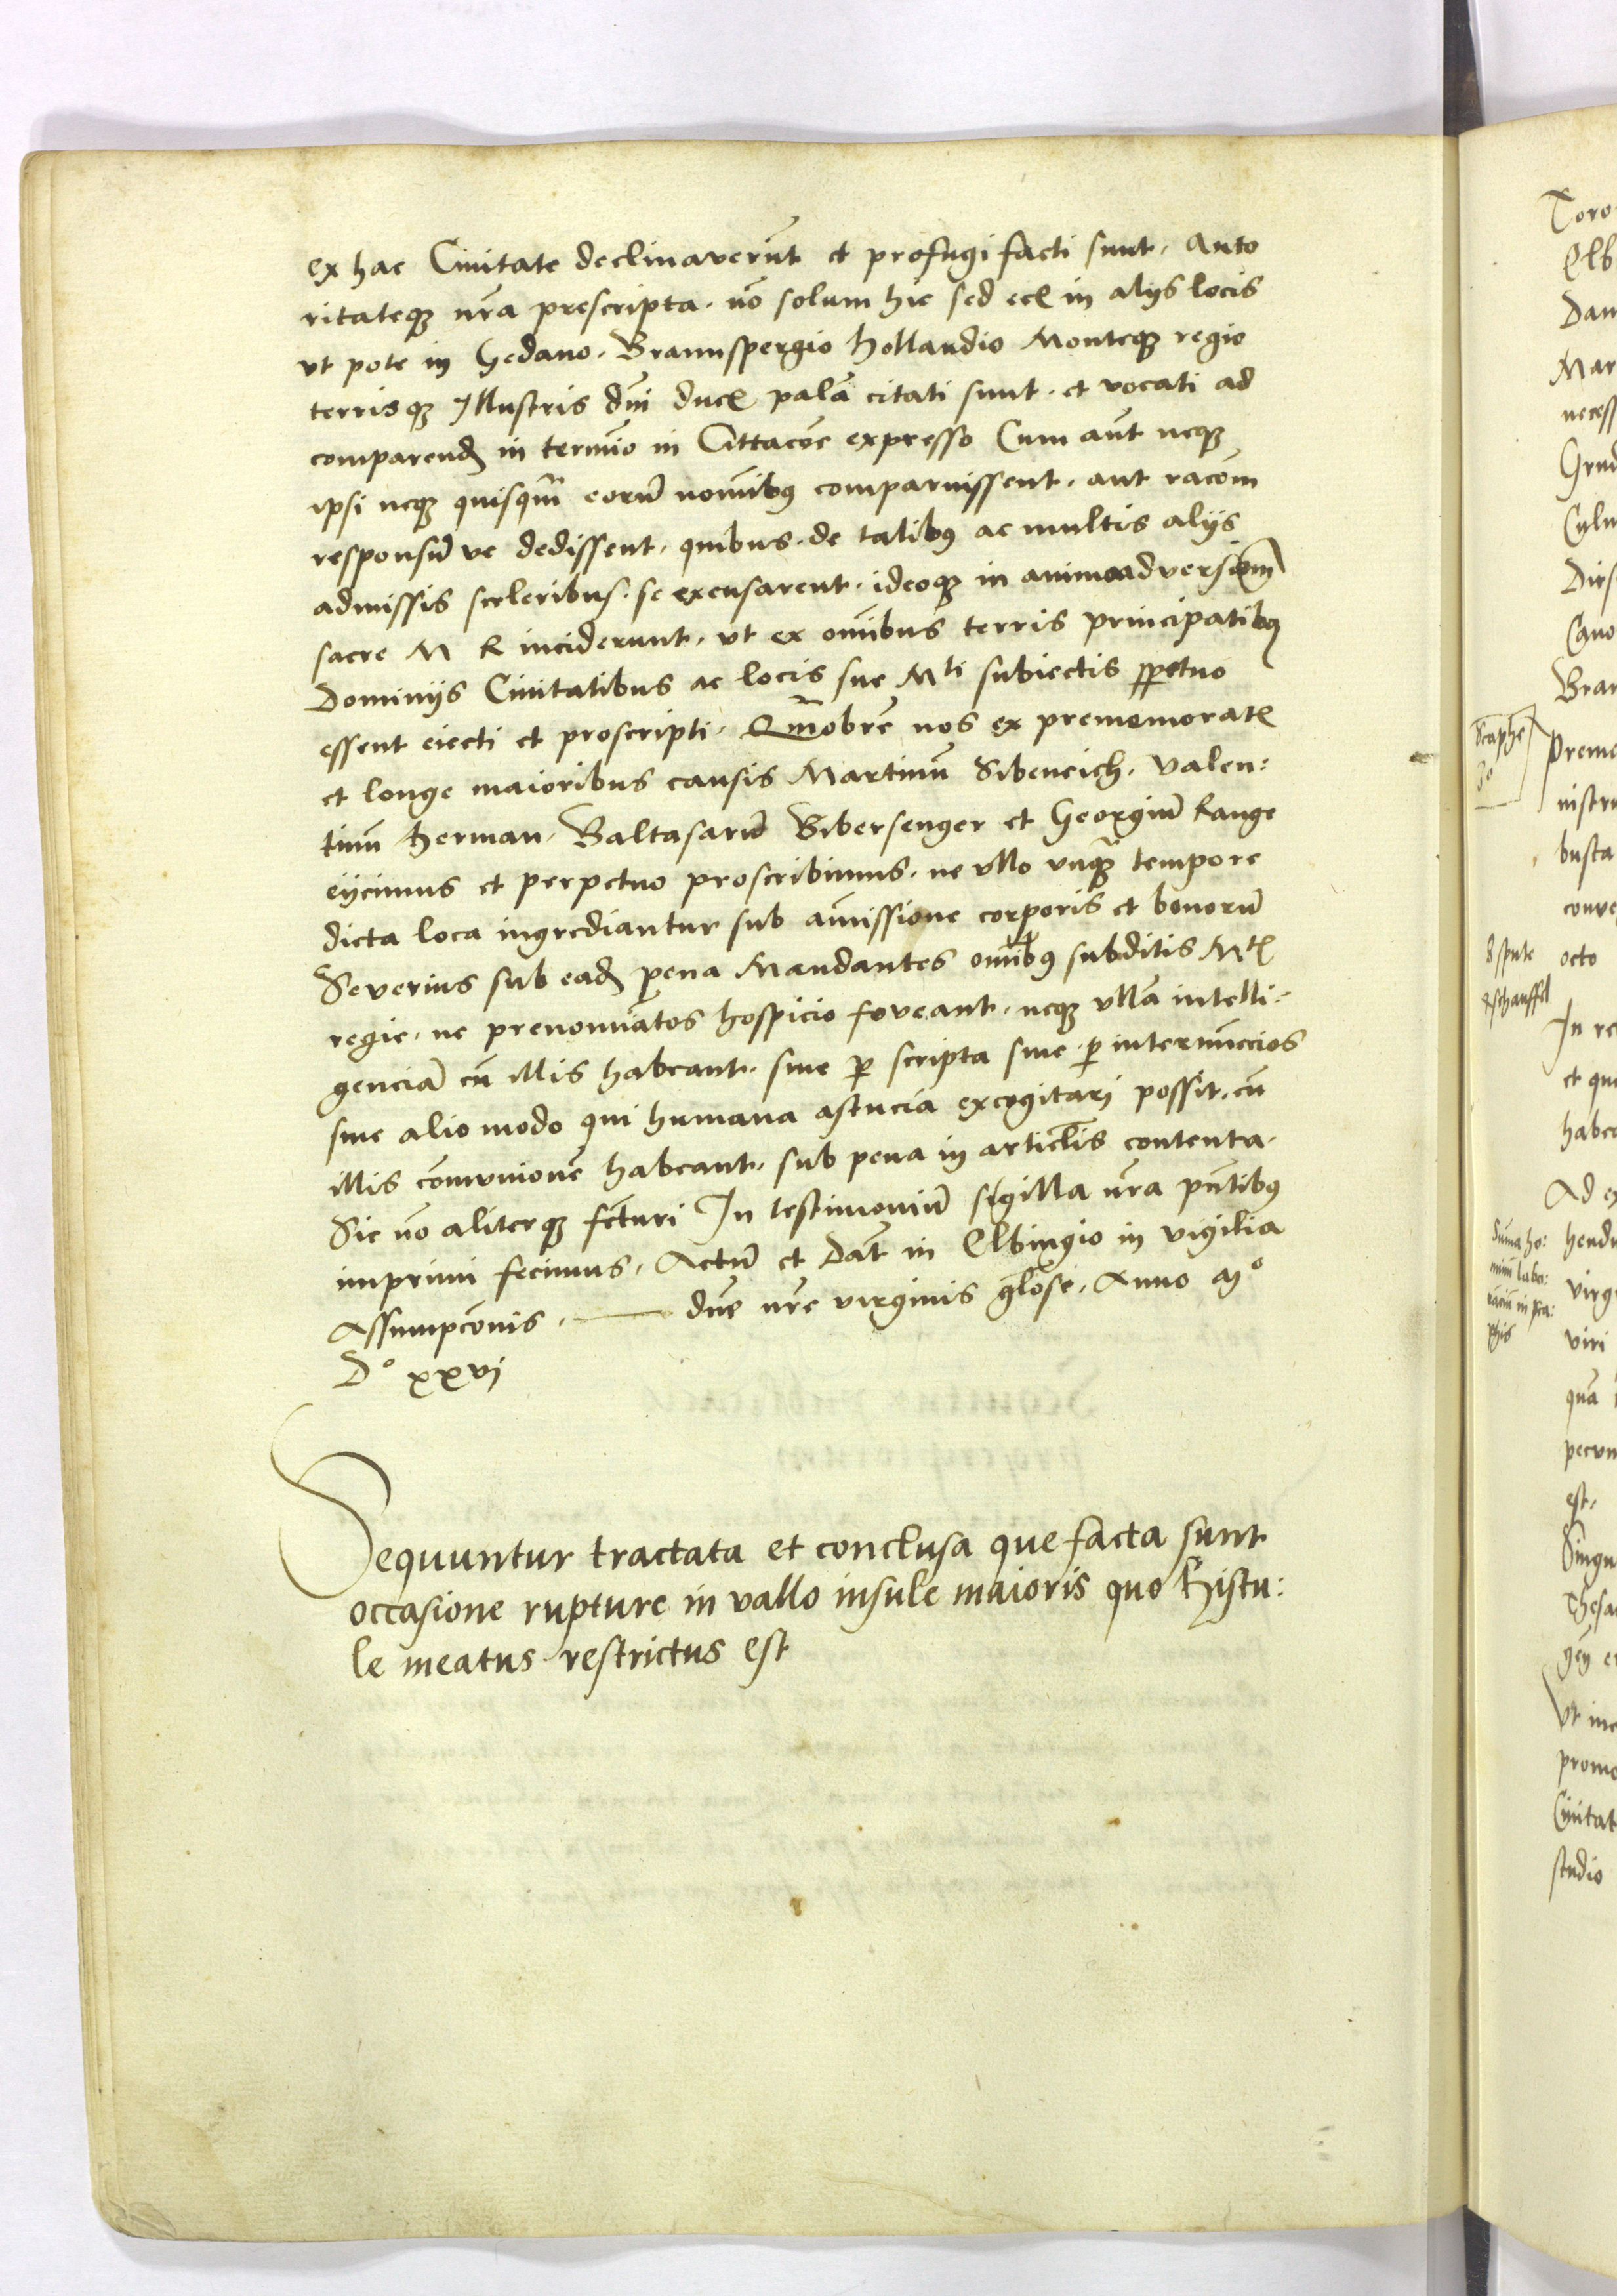 ex hac Ciuitate declinaverūt et profugi facti sunt. Auto
ritateqꝫ nr̄a prescripta. nō solum hic sed ecꝭ in alijs locis
vt pote in Gedano. Braunspergio Hollandio Monteqꝫ regio
terrisqꝫ Jllustris dn̄i ducꝭ palā citati sunt. et vocati ad
comparendꝫ in termīo in Cittacōe expresso Cum aūt neqꝫ
ipsi neqꝫ quisqm̄ eorū nomībꝰ comparuissent. aut racōm
responsū ve dedissent. quibus. de talibꝰ ac multis alijs
admissis sceleribus. se excusarent. ideoqꝫ in animaadversiōem
sacre M R inciderunt. vt ex omībus terris principatibꝰ
Dominijs Ciuitatibus ac locis sue Mti subiectis ꝑpetuo
essent eiecti et proscripti. Qm̄obrē nos ex prememoratꝭ
et longe maioribus causis Martinū Sibeneich. Valen:
tinū Herman. Baltasarū Bibersenger et Georgiū Range
eijcimus et perpetuo proscribimus. ne vllo vnqꝫ tempore
dicta loca ingrediantur sub amīssione corporis et bonorū
Severius sub eadꝫ pena Mandantes omībꝰ subditis Mtꝭ
regie. ne prenomīatos hospicio foveant. neqꝫ vllā intelli:
genciā cū illis habeant. siue ꝑ scripta siue ꝑ internūccios
siue alio modo qui humana astucia excogitari possit. cū
illis cōmunionē habeant. sub pena in articl̄is contenta.
Sic nō aliterqꝫ fct̄uri In testimoniū sigilla nr̄a pn̄tibꝰ
imprimi fecimus. Actū et Dat̄ in Elbingio in vigilia
Assumpcōnis. — dn̄e nr̄e virginis gl̄ose. Anno Mº
Dº xxvj
Sequuntur tractata et conclusa que facta sunt
occasione rupture in vallo insule maioris quo Histu:
le meatus restrictus est
Toro
Elb
Dan
Mar
necess
Grud
Culm
Dirs
Cano
Bran
Scaphe
Preme
instru
busta
conve
octo
In re
et qui
habea
Ad ex
Suma ho:
hendu
minū labo:
virg
phis
viri
quā
pecun
est.
Singu
Thesa
Vt inc
promo
Ciuitat
studio